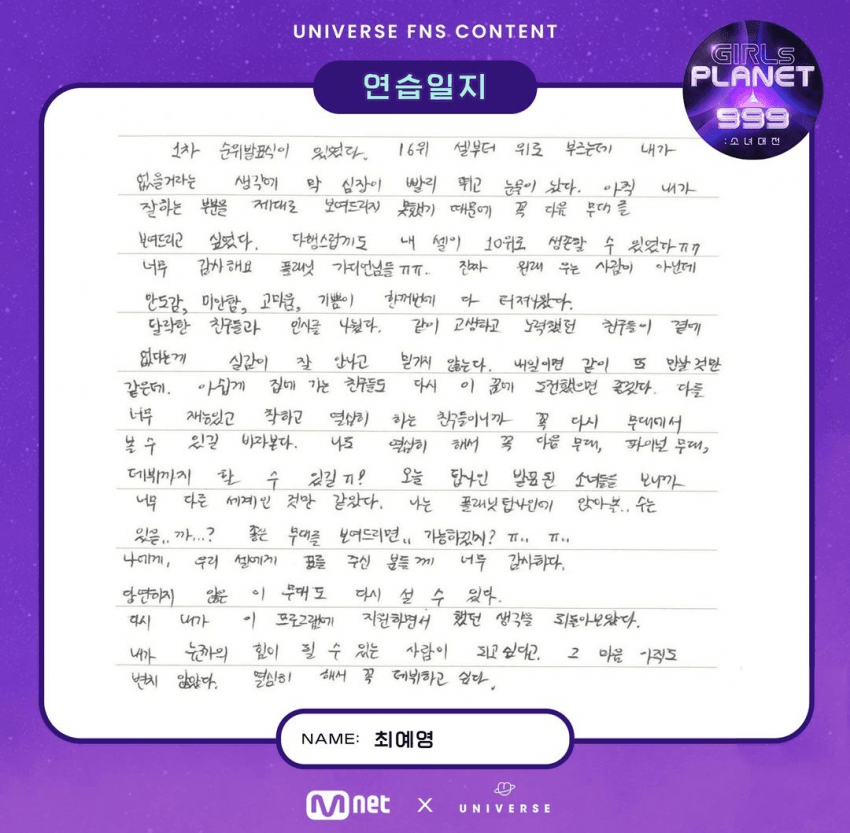 UNIVERSE FNS CONTENT
GIRLS
PLANET
999
:소녀대전
연습일지
1차 순위발표식이 있었다. 16위 셀부터 위로 부르는데 내가
없을거라는 생각에 막 심장이 빨리 뛰고 눈물이 났다. 아직 내가
잘하는 부분을 제대로 보여드리지 못했기 때문에 꼭 다음 무대를
보여드리고 싶었다. 다행스럽게도 내 셀이 10위로 생존할 수 있었다ㅠㅠ
너무 감사해요 플래닛 가디언님들 ㅠㅠ.. 진짜 원래 우는 사람이 아닌데
안도감, 미안함, 고마움, 기쁨이 한꺼번에 다 터져나왔다.
탈락한 친구들과 인사를 나눴다. 같이 고생하고 노력했던 친구들이 곁에
없다는게 실감이 잘 안나고 믿기지 않는다. 내일이면 같이 또 만날 것만
같은데. 아쉽게 집에 가는 친구들도 다시 이 꿈에 도전했으면 좋겠다. 다들
너무 재능있고 착하고 열심히 하는 친구들이니까 꼭 다시 무대에서
볼 수 있길 바라본다. 나도 열심히 해서 꼭 다음 무대, 파이널 무대,
데뷔까지 할 수 있길 ㅠ! 오늘 탑나인 발표된 소녀들을 보니까
너무 다른 세계인 것만 같았다. 나는 플래닛탑나인에 앉아볼.. 수는
있을..까...? 좋은 무대를 보여드리면.. 가능하겠지? ㅠ.. ㅠ..
나에게, 우리 셀에게 표를 주신 분들께 너무 감사하다.
당연하지 않은 이 무대도 다시 설 수 있다.
다시 내가 이 프로그램에 지원하면서 했던 생각을 되돌아보았다.
내가 누군가의 힘이 될 수 있는 사람이 되고싶다고. 그 마음 아직도
변치 않았다. 열심히 해서 꼭 데뷔하고 싶다.
NAME: 최예영
Mnet X UNIVERSE